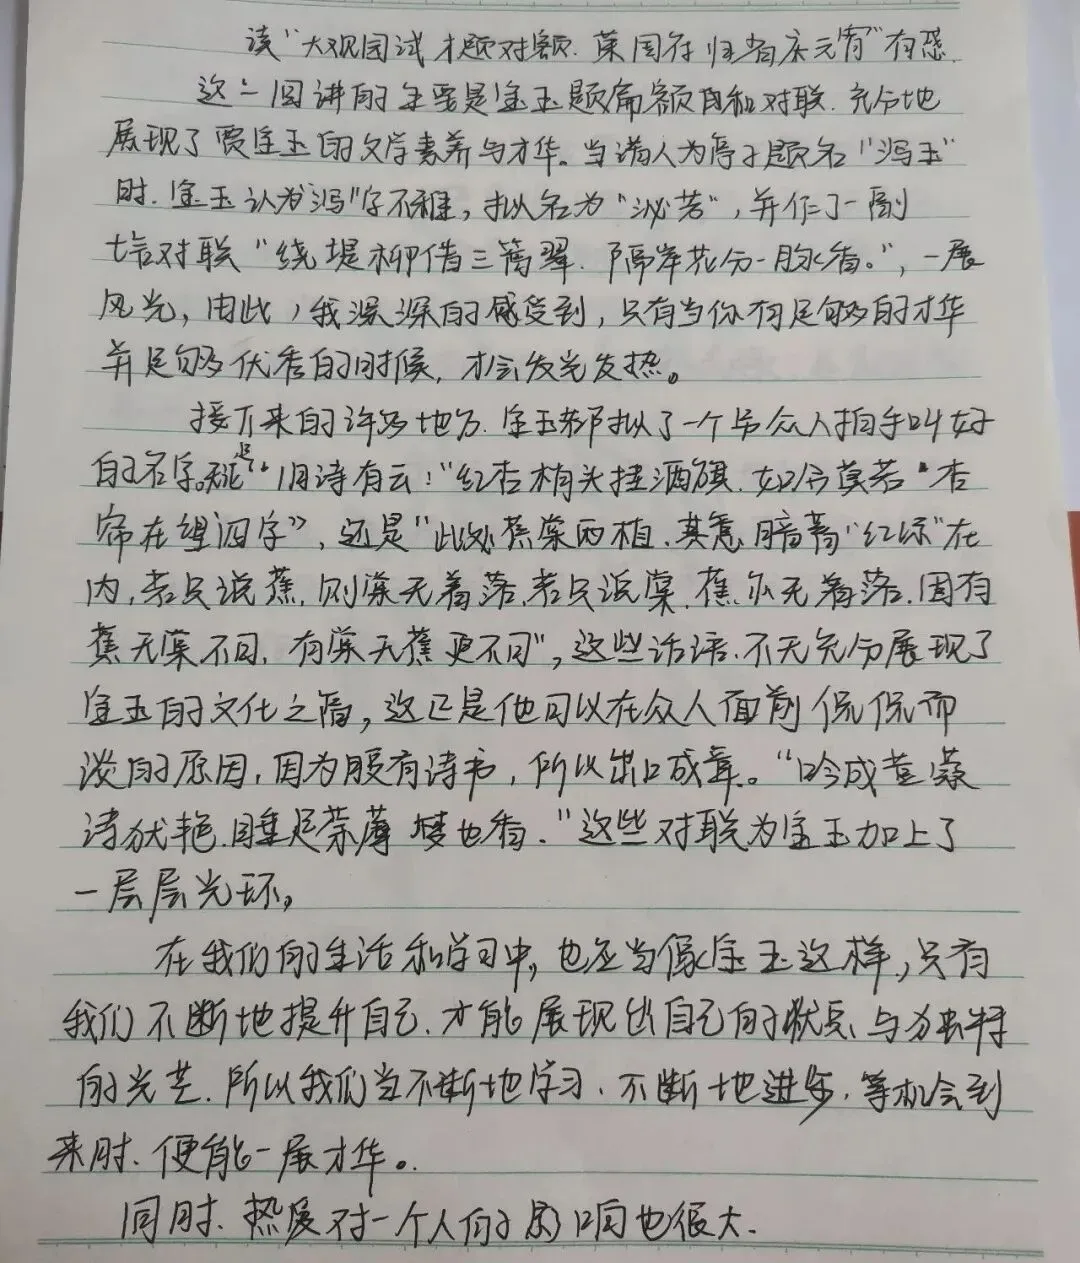 读"大观园试才题对额.荣国府归省庆元宵"有感.
这一回讲的主要是宝玉题篇额和对联.充分地
展现了贾宝玉的文学素养与才华。当满人为亭子题名"泻玉"
时.宝玉认为"泻"字不雅，拟名为"沁芳"，并作了一副
对联"绕堤柳借三篙翠.隔岸花分一脉香。"，一展
风光，由此，我深深的感受到，只有当你有足够的才华
并足够优秀的时候，才会发光发热。
接下来的许多地方.宝玉都拟了一个另众人拍手叫好
的名字。无论是"旧诗有云："红杏梢头挂酒旗.如今莫若"杏
帘在望四字"，还是"此处蕉棠两植.其意暗蓄"红绿"在
内，若只说蕉，则棠无着落.若只说棠.蕉亦无着落.固有
蕉无棠不可，有棠无蕉更不可"，这些话语.不无充分展现了
宝玉的文化之高，这正是他可以在众人面前侃侃而
谈的原因，因为腹有诗书，所以出口成章。"吟成荳蔻
诗犹艳.睡足荼薇梦也香."这些对联为宝玉加上了
一层层光环。
在我们的生活和学习中，也应当像宝玉这样，只有
我们不断地提升自己.才能展现出自己的优点与独特
的光芒.所以我们当不断地学习.不断地进步.等机会到
来时.便能一展才华。
同时.热度对一个人的影响也很大.